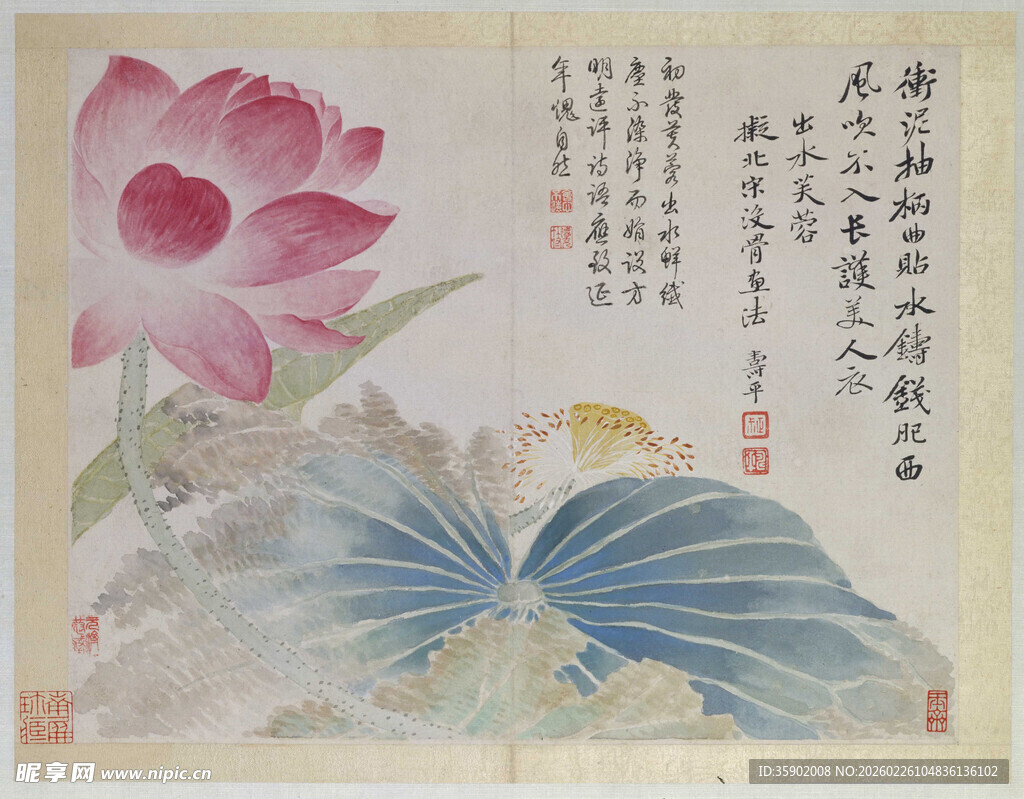 衝泥抽柄曲貼水鑄錢肥西
風吹不入长護美人衣
出水芙蓉
擬北宋没骨画法 壽平
初發芙蓉出水鮮纖
塵不染淨而娟設方
明遠評詩語應致延
年愧自然
昵享网 www.nipic.cn
ID:35902008 NO:20260226104836136102